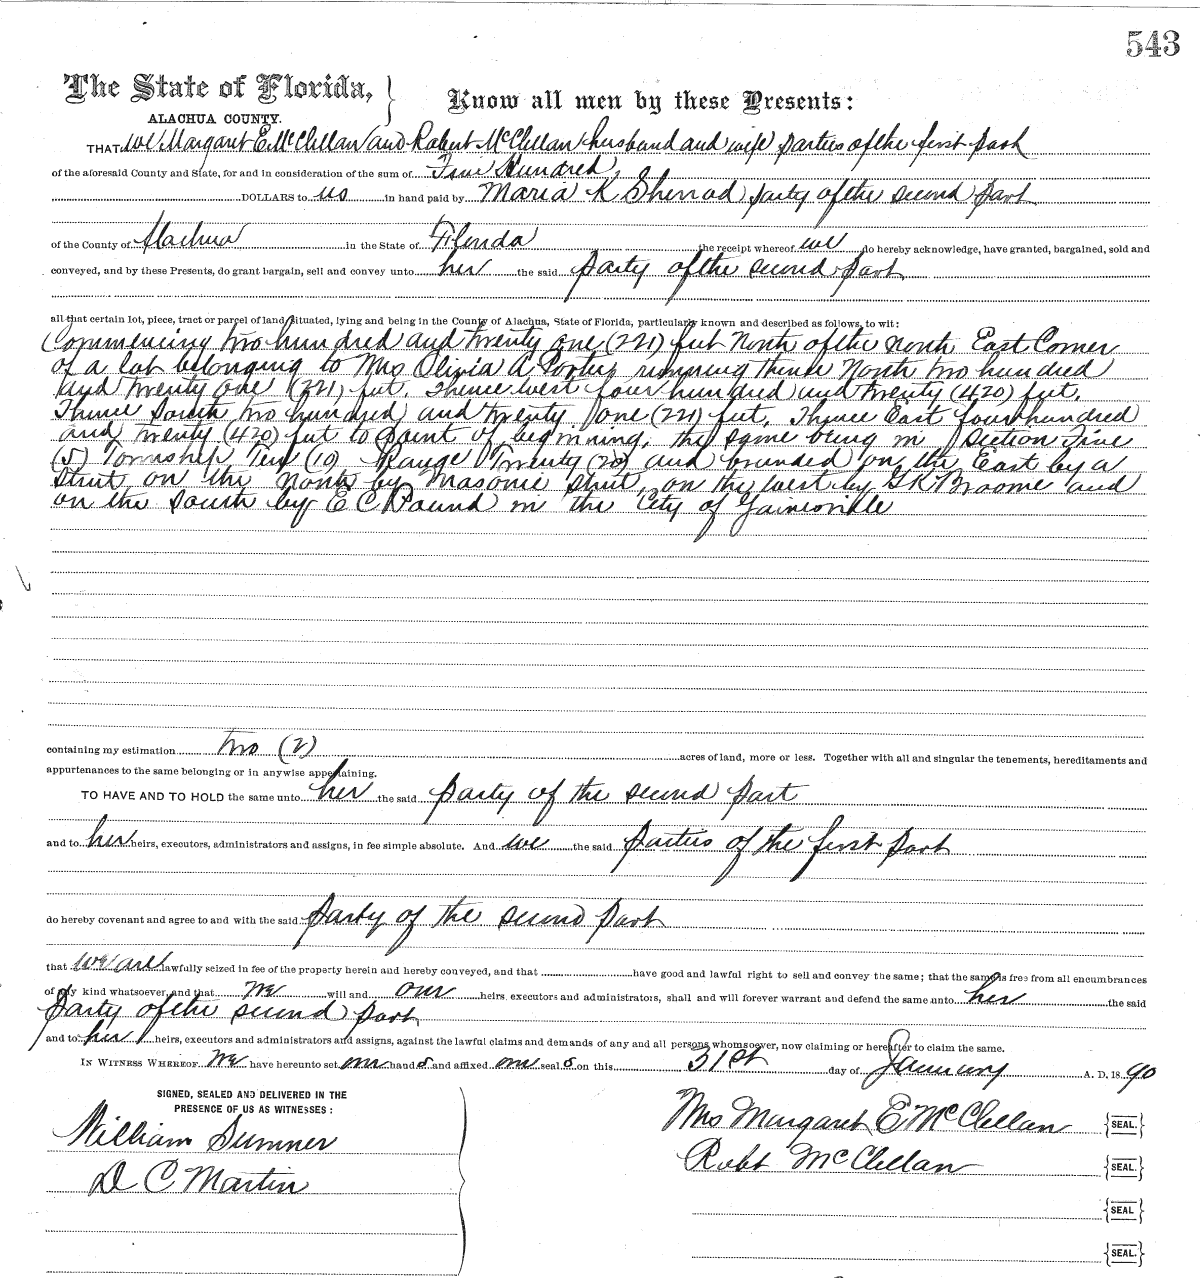 543
The State of Florida,
ALACHUA COUNTY.
Know all men by these Presents:
THAT we Margaret E. McClellan and Robert McClellan husband and wife parties of the first part
of the aforesaid County and State, for and in consideration of the sum of Five Hundred
DOLLARS to us in hand paid by Maria K Sherrod party of the second part
of the County of Alachua in the State of Florida the receipt whereof we do hereby acknowledge, have granted, bargained, sold and
conveyed, and by these Presents, do grant bargain, sell and convey unto her the said party of the second part
all that certain lot, piece, tract or parcel of land situated, lying and being in the County of Alachua, State of Florida, particularly known and described as follows, to wit:
Commencing two hundred and twenty one (221) feet North of the north East Corner
of a lot belonging to Mrs Olivia A Porter running thence North two hundred
and twenty one (221) feet. Thence west four hundred and twenty (420) feet.
Thence South two hundred and twenty one (221) feet. Thence East four hundred
and twenty (420) feet to point of beginning, the same being in Section Five
(5) Township Ten (10) Range Twenty (20) and bounded on the East by a
Street on the North by Masonic Street, on the west by Broome and
on the South by E C Pound in the City of Gainesville
containing my estimation two (2) acres of land, more or less. Together with all and singular the tenements, hereditaments and
appurtenances to the same belonging or in anywise appertaining.
TO HAVE AND TO HOLD the same unto her the said party of the second part
and to her heirs, executors, administrators and assigns, in fee simple absolute. And we the said parties of the first part
do hereby covenant and agree to and with the said party of the second part
that we are lawfully seized in fee of the property herein and hereby conveyed, and that have good and lawful right to sell and convey the same; that the same is free from all encumbrances
of any kind whatsoever, and that we will and our heirs, executors and administrators, shall and will forever warrant and defend the same unto her the said
party of the second part
and to her heirs, executors and administrators and assigns, against the lawful claims and demands of any and all persons whomsoever, now claiming or hereafter to claim the same.
IN WITNESS WHEREOF We have hereunto set our hand s and affixed our seal s on this 31st day of January A. D. 18 90
SIGNED, SEALED AND DELIVERED IN THE
PRESENCE OF US AS WITNESSES:
William Sumner
D C Martin
Mrs Margaret E McClellan {SEAL.}
Robt McClellan {SEAL.}
{SEAL.}
{SEAL.}